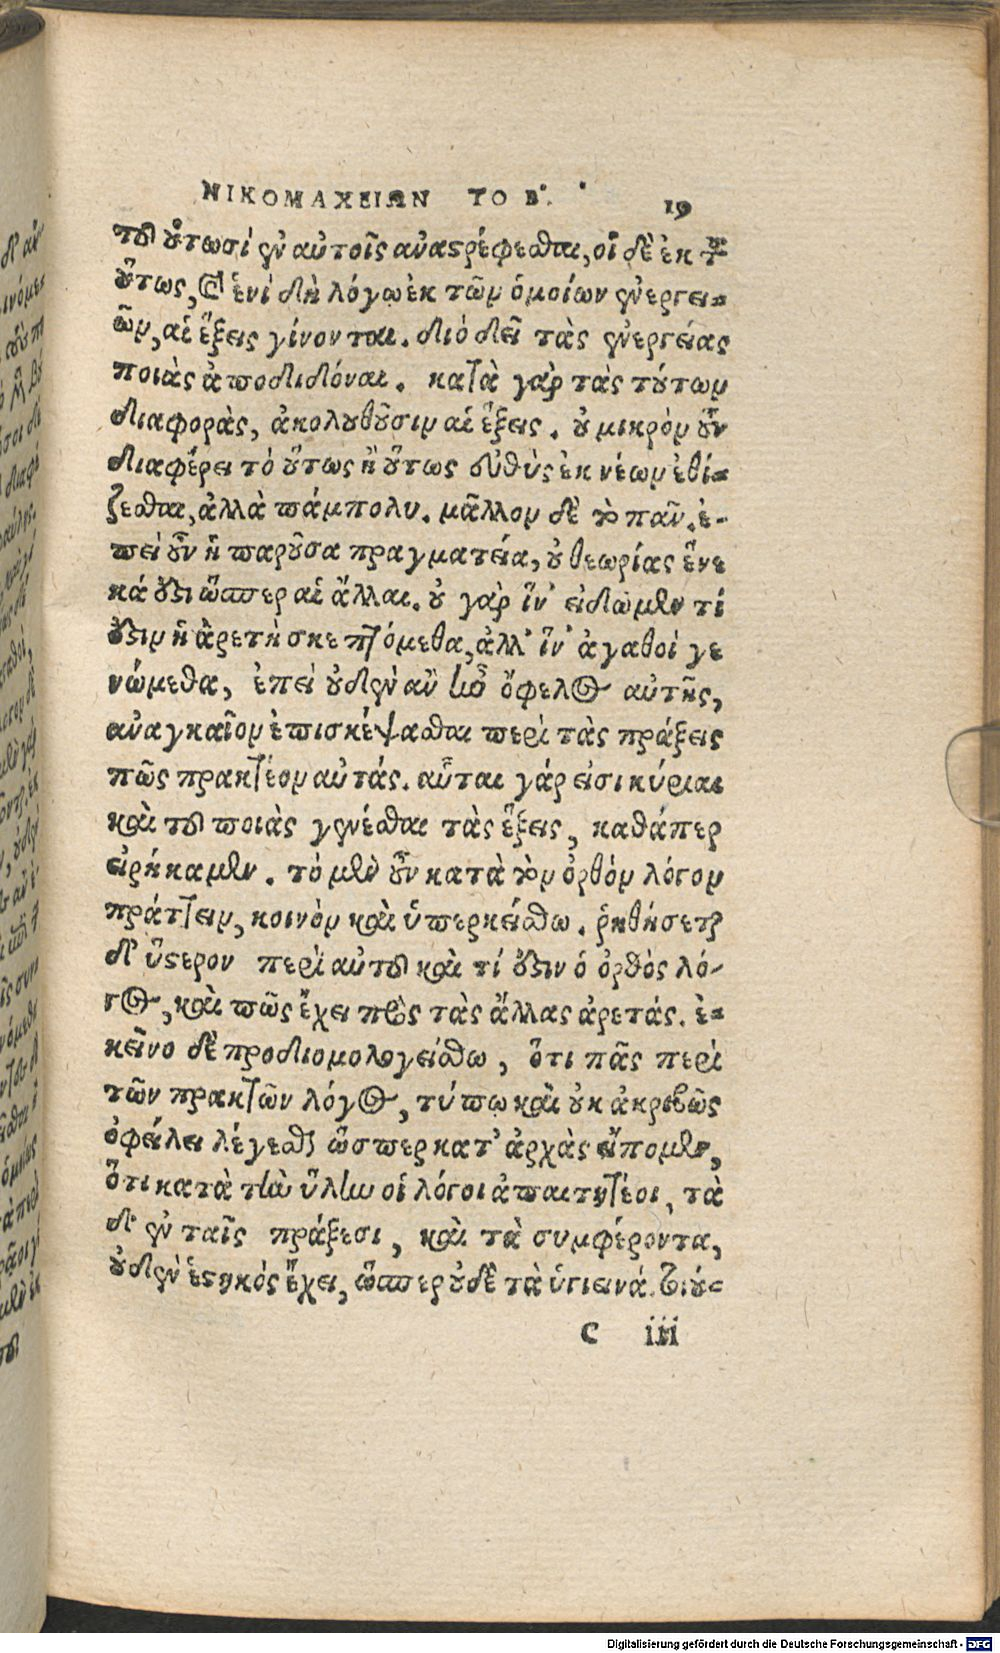 ΝΙΚΟΜΑΧΕΙΩΝ ΤΟ Β. 19
τοῦ οὕτωσὶ ἐν αὐτοῖς ἀναστρέφεσθαι, οἱ δὲ ἐκ τοῦ
οὕτως, καὶ ἑνὶ δὴ λόγῳ ἐκ τῶν ὁμοίων ἐνεργει-
ῶν, αἱ ἕξεις γίνονται. διὸ δεῖ τὰς ἐνεργείας
ποιὰς ἀποδιδόναι. κατὰ γὰρ τὰς τούτων
διαφορὰς, ἀκολουθοῦσιν αἱ ἕξεις. οὐ μικρὸν οὖν
διαφέρει τὸ οὕτως ἢ οὕτως εὐθὺς ἐκ νέων ἐθί-
ζεσθαι, ἀλλὰ πάμπολυ. μᾶλλον δὲ τὸ πᾶν. ἐ-
πεὶ οὖν ἡ παροῦσα πραγματεία, οὐ θεωρίας ἕνε
κά ἐστι ὥσπερ αἱ ἄλλαι. οὐ γὰρ ἵν' εἰδῶμεν τί
ἐστιν ἡ ἀρετὴ σκεπτόμεθα, ἀλλ' ἵν' ἀγαθοὶ γε
νώμεθα, ἐπεὶ οὐδὲν ἂν ἦν ὄφελος αὐτῆς,
ἀναγκαῖον ἐπισκέψασθαι περὶ τὰς πράξεις
πῶς πρακτέον αὐτάς. αὗται γάρ εἰσι κύριαι
καὶ τοῦ ποιὰς γενέσθαι τὰς ἕξεις, καθάπερ
εἰρήκαμεν. τὸ μὲν οὖν κατὰ τὸν ὀρθὸν λόγον
πράττειν, κοινὸν καὶ ὑπερκείσθω. ῥηθήσεται
δ' ὕστερον περὶ αὐτοῦ καὶ τί ἐστιν ὁ ὀρθὸς λό-
γος, καὶ πῶς ἔχει πρὸς τὰς ἄλλας ἀρετάς. ἐ-
κεῖνο δὲ προδιομολογείσθω, ὅτι πᾶς περὶ
τῶν πρακτῶν λόγος, τύπῳ καὶ οὐκ ἀκριβῶς
ὀφείλει λέγεσθαι ὥσπερ κατ' ἀρχὰς εἴπομεν,
ὅτι κατὰ τὴν ὕλην οἱ λόγοι ἀπαιτητέοι, τὰ
δ' ἐν ταῖς πράξεσι, καὶ τὰ συμφέροντα,
οὐδὲν ἑστηκὸς ἔχει, ὥσπερ οὐδὲ τὰ ὑγιεινά. τοιού-
C iii
Digitalisierung gefördert durch die Deutsche Forschungsgemeinschaft - DFG